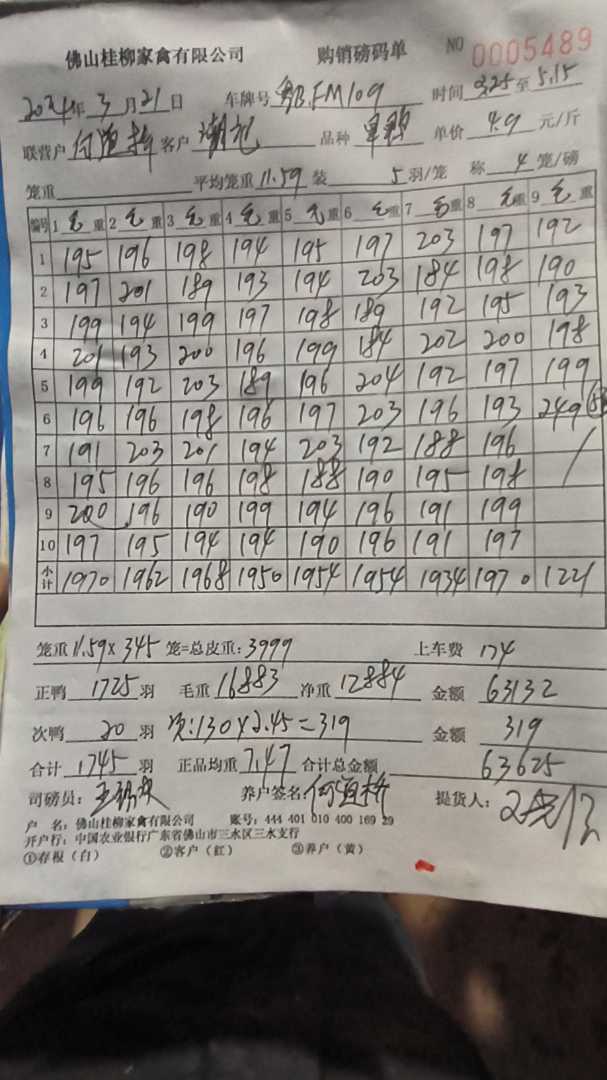 佛山桂柳家禽有限公司 购销磅码单 NO 0005489
2024年 3月21日 车牌号 粤B.FM109 时间 3.25 至 5.15
联营户 何 客户 潮 品种 单价 4.9 元/斤
笼重 平均笼重 11.59 装 5 羽/笼 称 4 笼/磅
编号 1 毛重 2 毛重 3 毛重 4 毛重 5 毛重 6 毛重 7 毛重 8 毛重 9 毛重
1 195 196 198 194 195 197 203 197 192
2 197 201 189 193 194 203 184 198 190
3 199 194 199 197 198 189 192 195 193
4 201 193 200 196 199 184 202 200 198
5 199 192 203 189 196 204 192 197 199
6 196 196 198 196 197 203 196 193 249
7 191 203 201 194 203 192 188 196
8 195 196 196 198 188 190 195 198
9 200 196 190 199 194 196 191 199
10 197 195 194 194 190 196 191 197
小计 1970 1962 1968 1950 1954 1954 1934 1970 1221
笼重 11.59 × 345 笼=总皮重: 3999 上车费 174
正鸭 1725 羽 毛重 16883 净重 12884 金额 63132
次鸭 20 羽 次:130×2.45=319 金额 319
合计 1745 羽 正品均重 7.47 合计总金额 63625
司磅员: 养户签名 何 提货人:
户 名: 佛山桂柳家禽有限公司 账号: 444 401 010 400 169 29
开户行: 中国农业银行广东省佛山市三水区三水支行
①存根(白) ②客户(红) ③养户(黄)